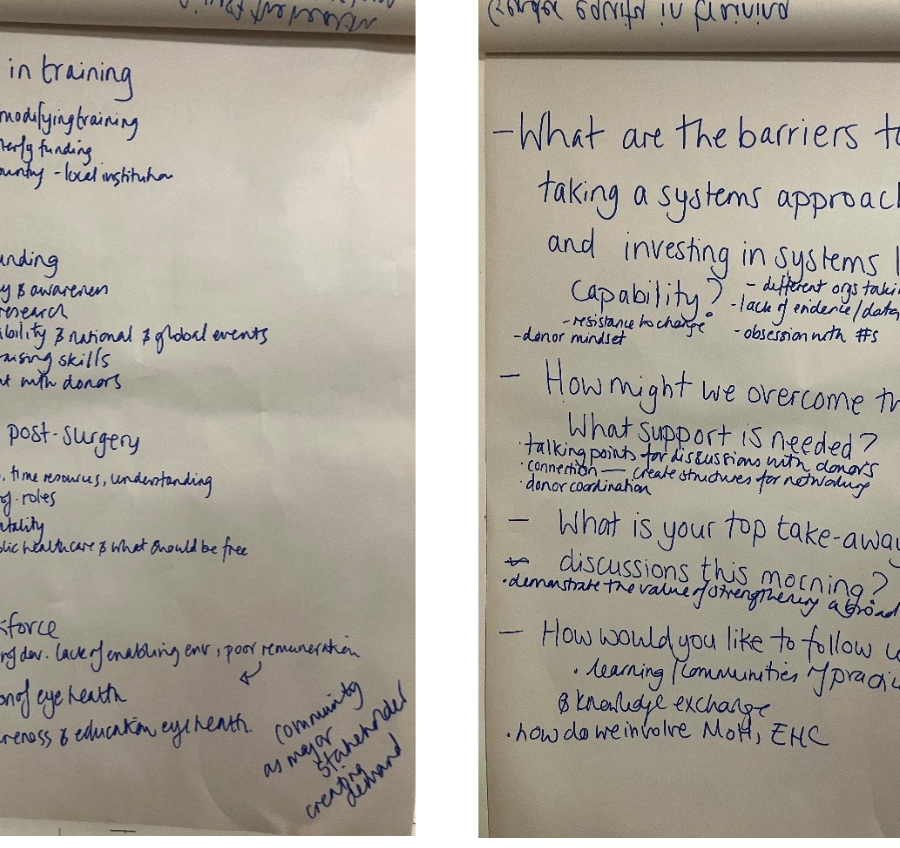 in training
modifying training
funding
ountry - local institution
unding
y & awareness
research
ibility & national & global events
aising skills
nt with donors
post-surgery
, time resources, understanding
of roles
ntality
lic healthcare & what should be free
kforce
ng dev. lack of enabling env, poor remuneration
on of eye health
reness & education eye health
community
as major
stakeholder
creating
demand
- What are the barriers to
taking a systems approach
and investing in systems l
capability?
- different orgs taki
- lack of evidence/data
- resistance to change
- obsession with #s
- donor mindset
- How might we overcome th
What support is needed?
· talking points for discussions with donors
· connection — create structures for networking
· donor coordination
- What is your top take-away
discussions this morning?
· demonstrate the value of strengthening abroad
- How would you like to follow u
· learning/communities of practic
& knowledge exchange
· how do we involve MoH, EHC